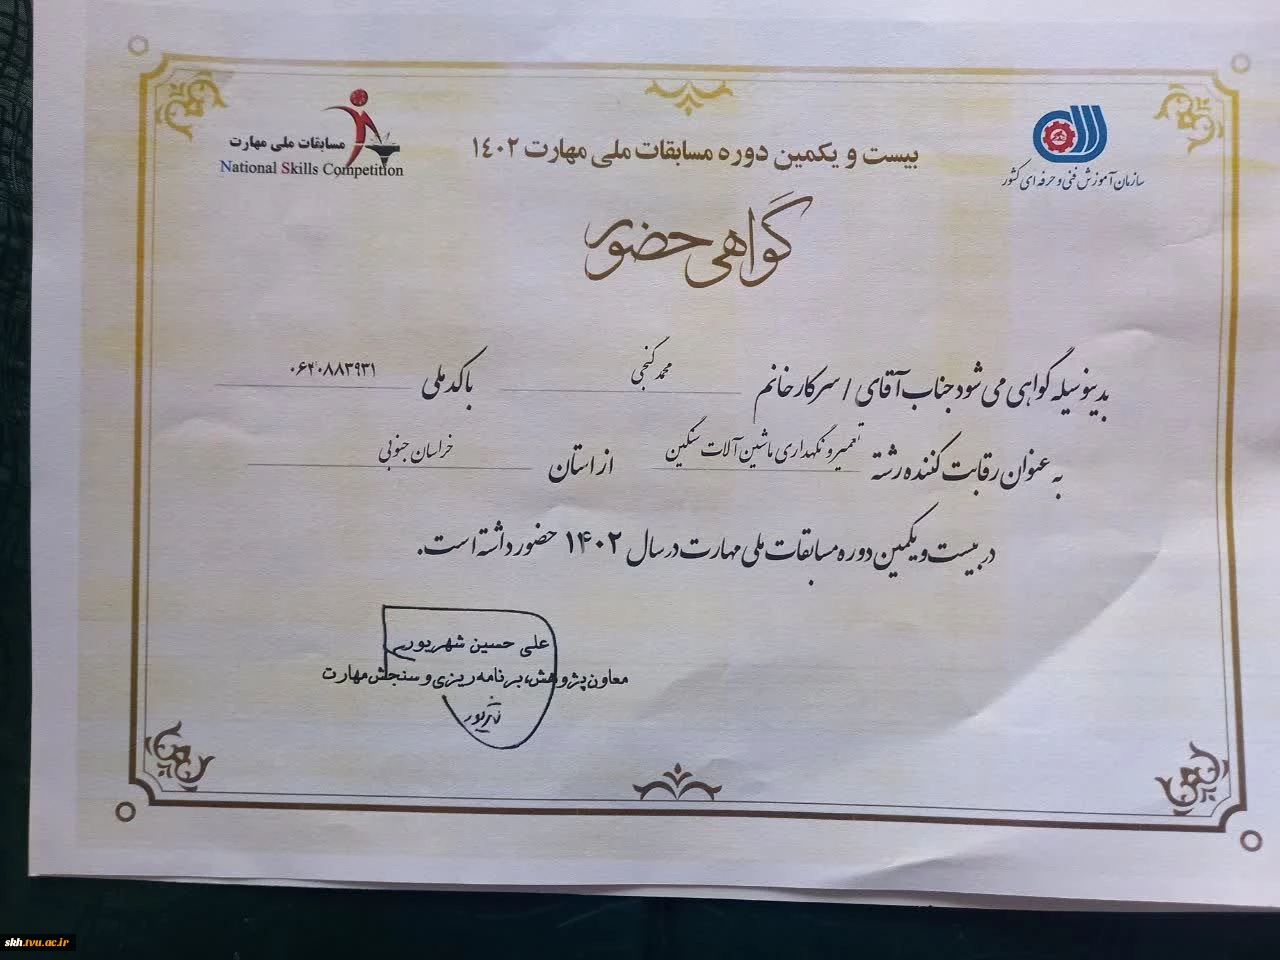 مسابقات ملی مهارت
National Skills Competition
بیست و یکمین دوره مسابقات ملی مهارت ۱٤۰۲
سازمان آموزش فنی و حرفه ای کشور
گواهی حضور
بدینوسیله گواهی می شود جناب آقای / سرکار خانم محمد گنجی با کد ملی ۰۶۴۰۸۸۳۹۳۱
به عنوان رقابت کننده رشته تعمیر و نگهداری ماشین آلات سنگین از استان خراسان جنوبی
در بیست و یکمین دوره مسابقات ملی مهارت در سال ۱۴۰۲ حضور داشته است.
علی حسین شهریور
معاون پژوهش، برنامه ریزی و سنجش مهارت
skh.tvu.ac.ir